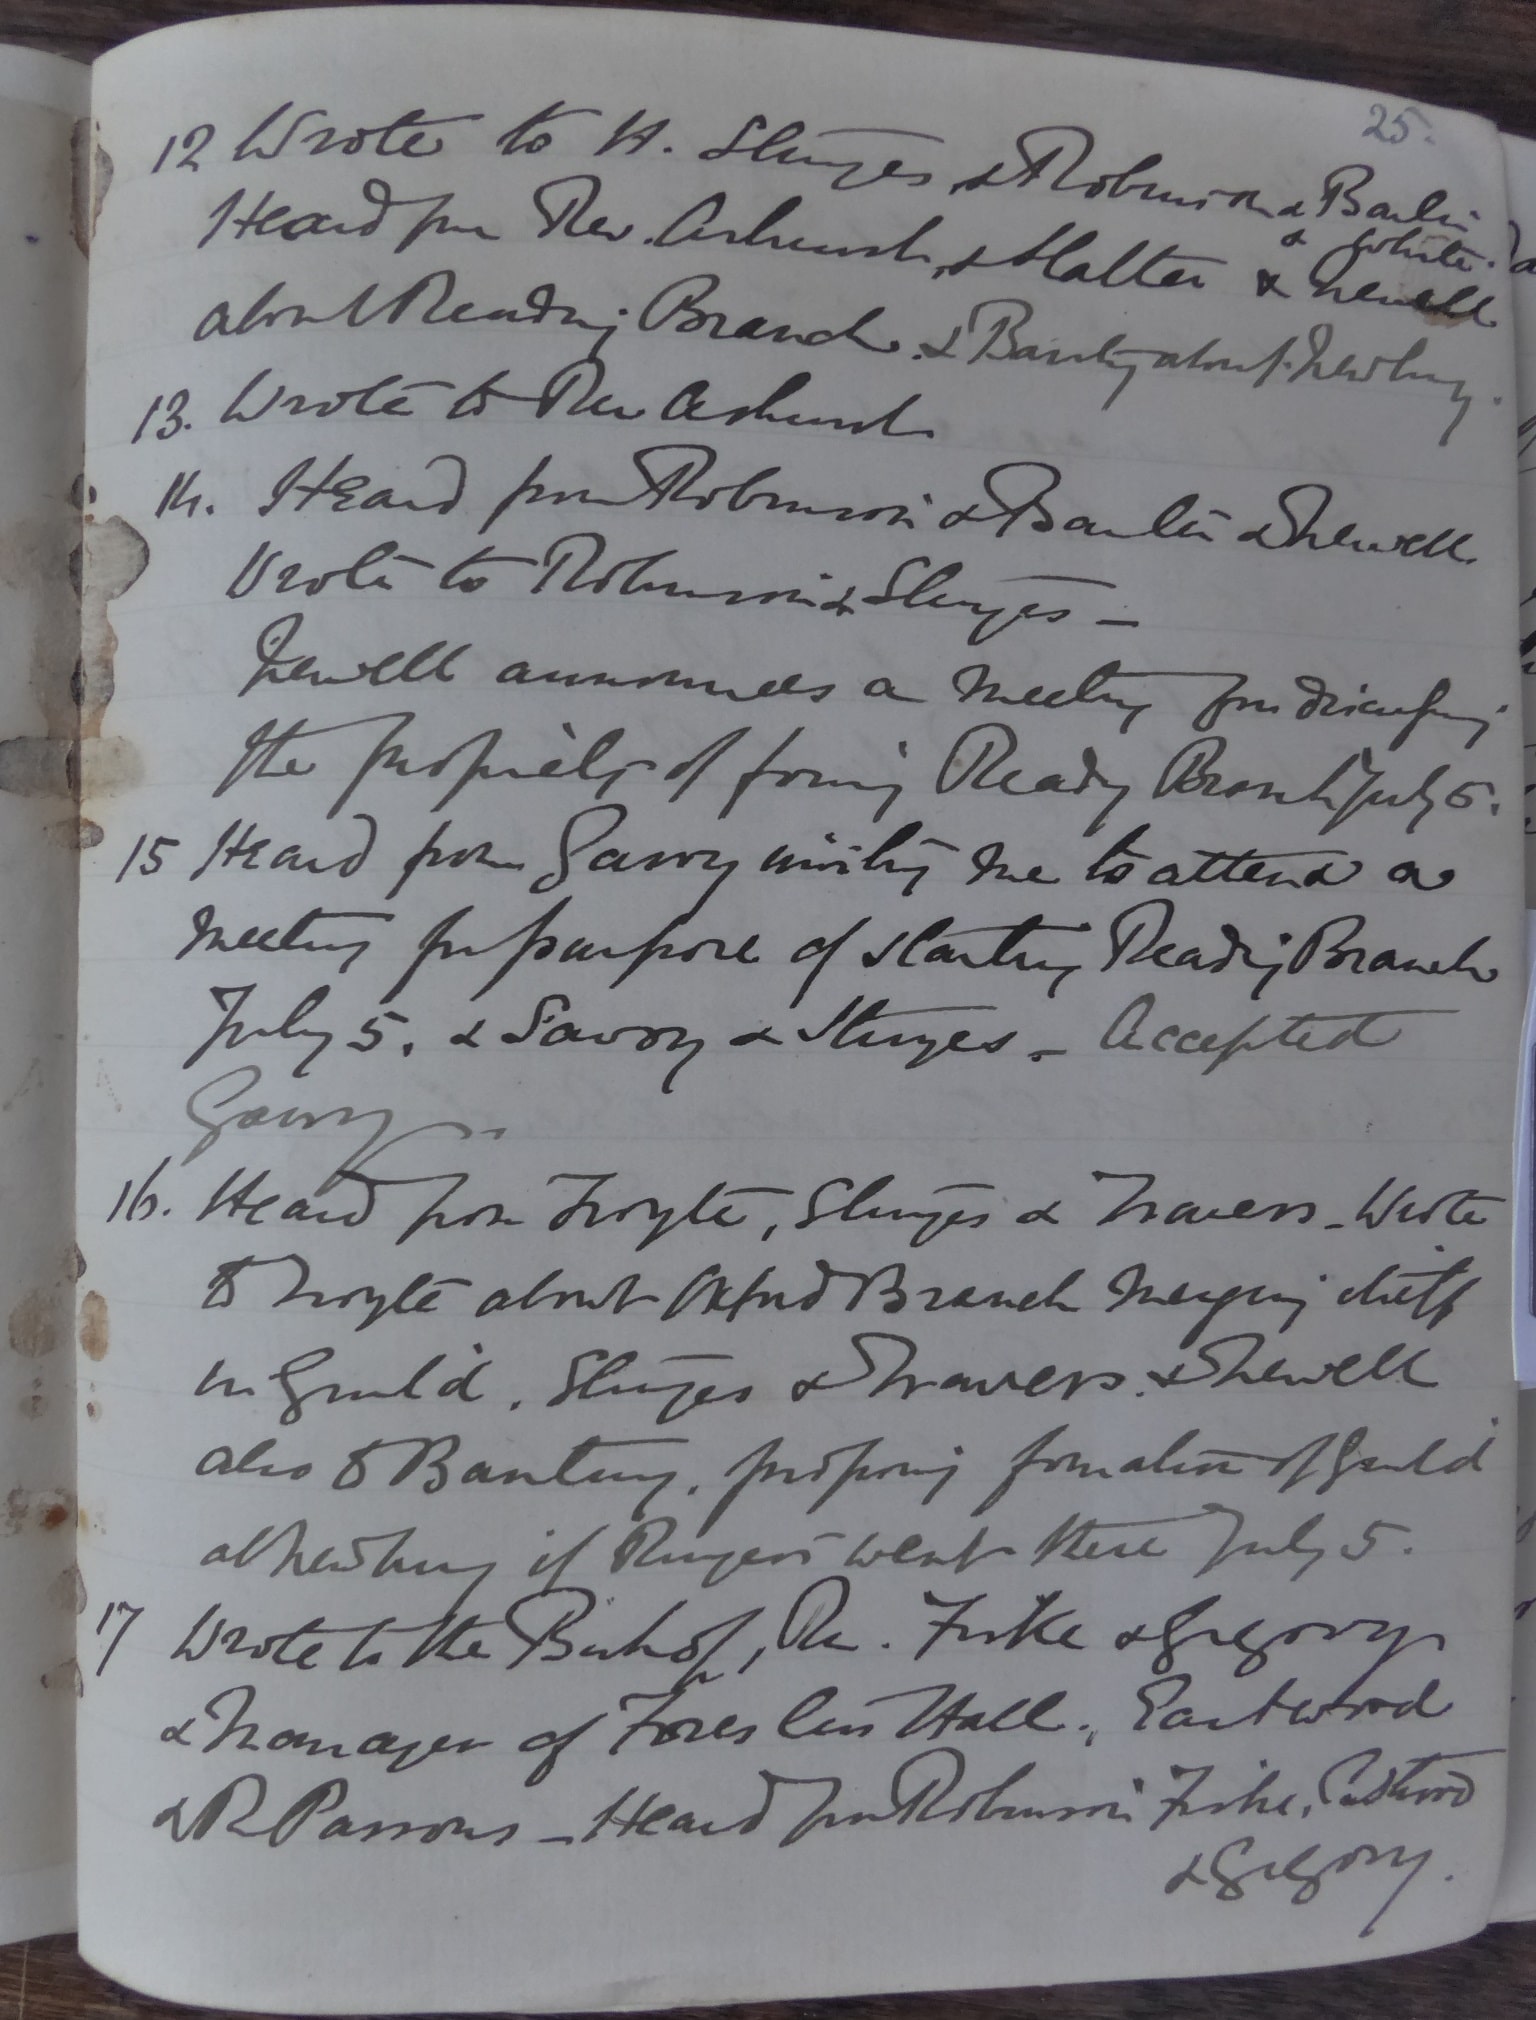 25.
12 Wrote to H. Sturges, & Robinson & Bartin
& White.
Heard from Rev. Ashurst, & Slatter & Newell
about Reading Branch. & Banting about Newbury.
13. Wrote to Rev Ashurst
14. Heard from Robinson & & Newell.
Wrote to Robinson & Sturges —
Newell announces a meeting for discussing
the propriety of forming Reading Branch July 5.
15 Heard from Savory inviting me to attend a
meeting for purpose of starting Reading Branch
July 5. & Savory & Sturges – Accepted
Savory –
16. Heard from Troyte, Sturges & Travers – Wrote
to Troyte about Oxford Branch merging itself
in Guild. Sturges & Travers. & Newell
also to Banting. proposing formation of Guild
at Newbury if Ringers went there July 5.
17 Wrote to the Bishop, Rev. Fiske & Gregory
& Manager of Foresters Hall., Eastwood
& R Parsons – Heard from Robinson Fiske, Eastwood
& Gregory.